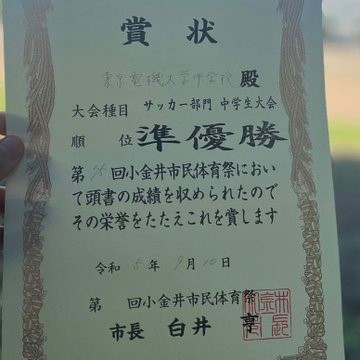 賞状
東京電機大学中学校 殿
大会種目 サッカー部門 中学生大会
順位 準優勝
第75回小金井市民体育祭におい
て頭書の成績を収められたので
その栄誉をたたえこれを賞します
令和5年9月10日
第 回小金井市民体育祭
市長 白井 亨